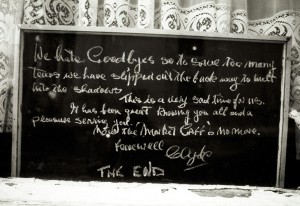 We hate Goodbyes so to save too many
Tears we have slipped out the back way to melt
into the shadows
This is a very sad time for us.
It has been great knowing you all and a
pleasure serving you.
Now the Market Café is no more.
Farewell
Clyde
THE END